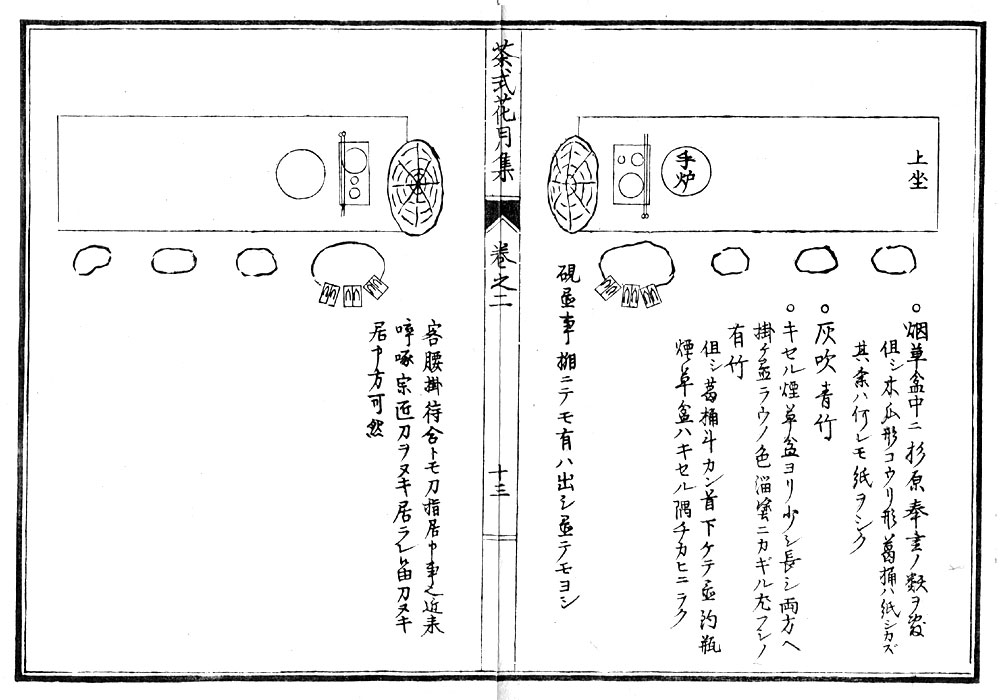 上坐
手炉
○烟草盆中ニ杉原奉書ノ類ヲ敷
但シ木瓜形コウリ形葛桶ハ紙シカズ
其余ハ何レモ紙ヲシク
○灰吹青竹
○キセル煙草盆ヨリ少シ長シ両方ヘ
掛ケ置ラウノ色溜塗ニカギル尤フシノ
有竹
但シ葛桶斗カン首下ケテ置釣瓶
煙草盆ハキセル隅チカヒニヲク
硯置事棚ニテモ有ハ出シ置テモヨシ
茶式花月集
巻之二
十三
客腰掛待合トモ刀指居申事也近来
啐啄宗匠刀ヲヌキ居ラレ候由刀ヌキ
居申方可然